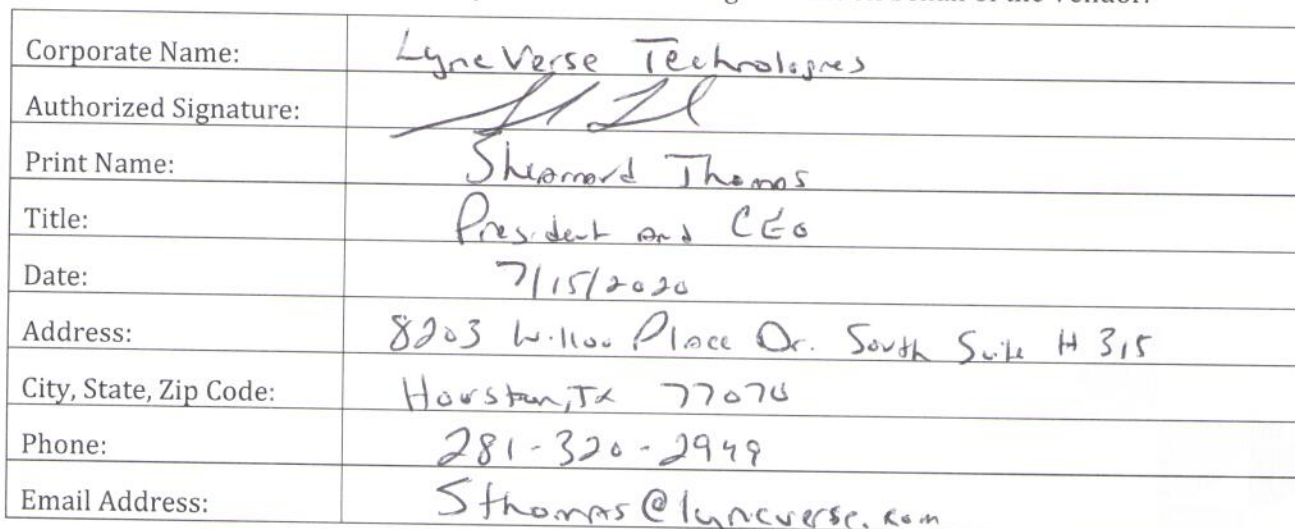 behalf of the vendor.
Corporate Name: LyneVerse Technologies
Authorized Signature:
Print Name: Thomas
Title: President and CEO
Date: 7/15/2020
Address: 8203 Willow Place Dr. South Suite # 315
City, State, Zip Code: Houston, TX 77070
Phone: 281-320-2949
Email Address: Sthomas@lyneverse.com